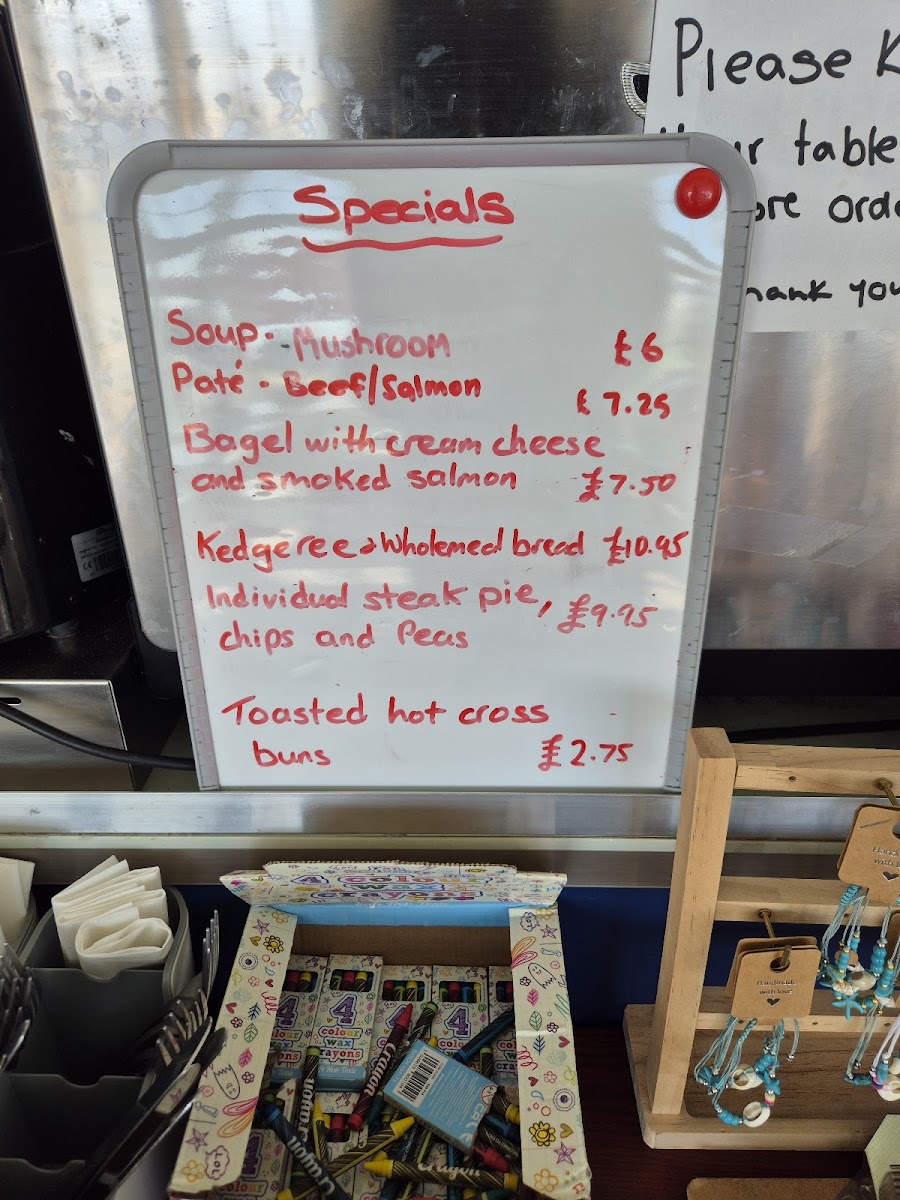 Please K
r table
ore orde
hank you
Specials
Soup. Mushroom £6
Paté. Beef/Salmon £7.25
Bagel with cream cheese
and smoked salmon £7.50
Kedgeree & Wholemed bread £10.95
Individual steak pie, £9.95
chips and Peas
Toasted hot cross
buns £2.75
4 colour
wax
crayons
4
colour
wax
crayons
Crayon
Crayon
Crayon
LOL
Handmade
with love